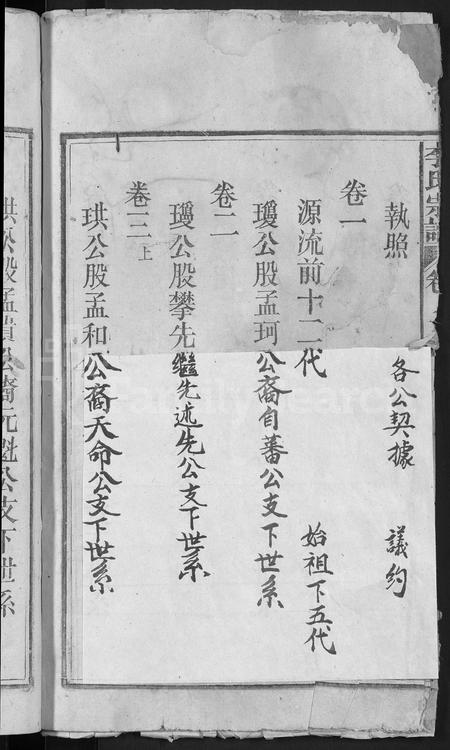 李氏宗譜 卷
執照 各公契據 議約
卷一
源流前十二代 始祖下五代
瓊公股孟珂公裔自蕃公支下世系
卷二
瓊公股攀先繼先述先公支下世系
卷三上
珙公股孟和公裔天命公支下世系
珙公股孟積公裔元魁公支下世系